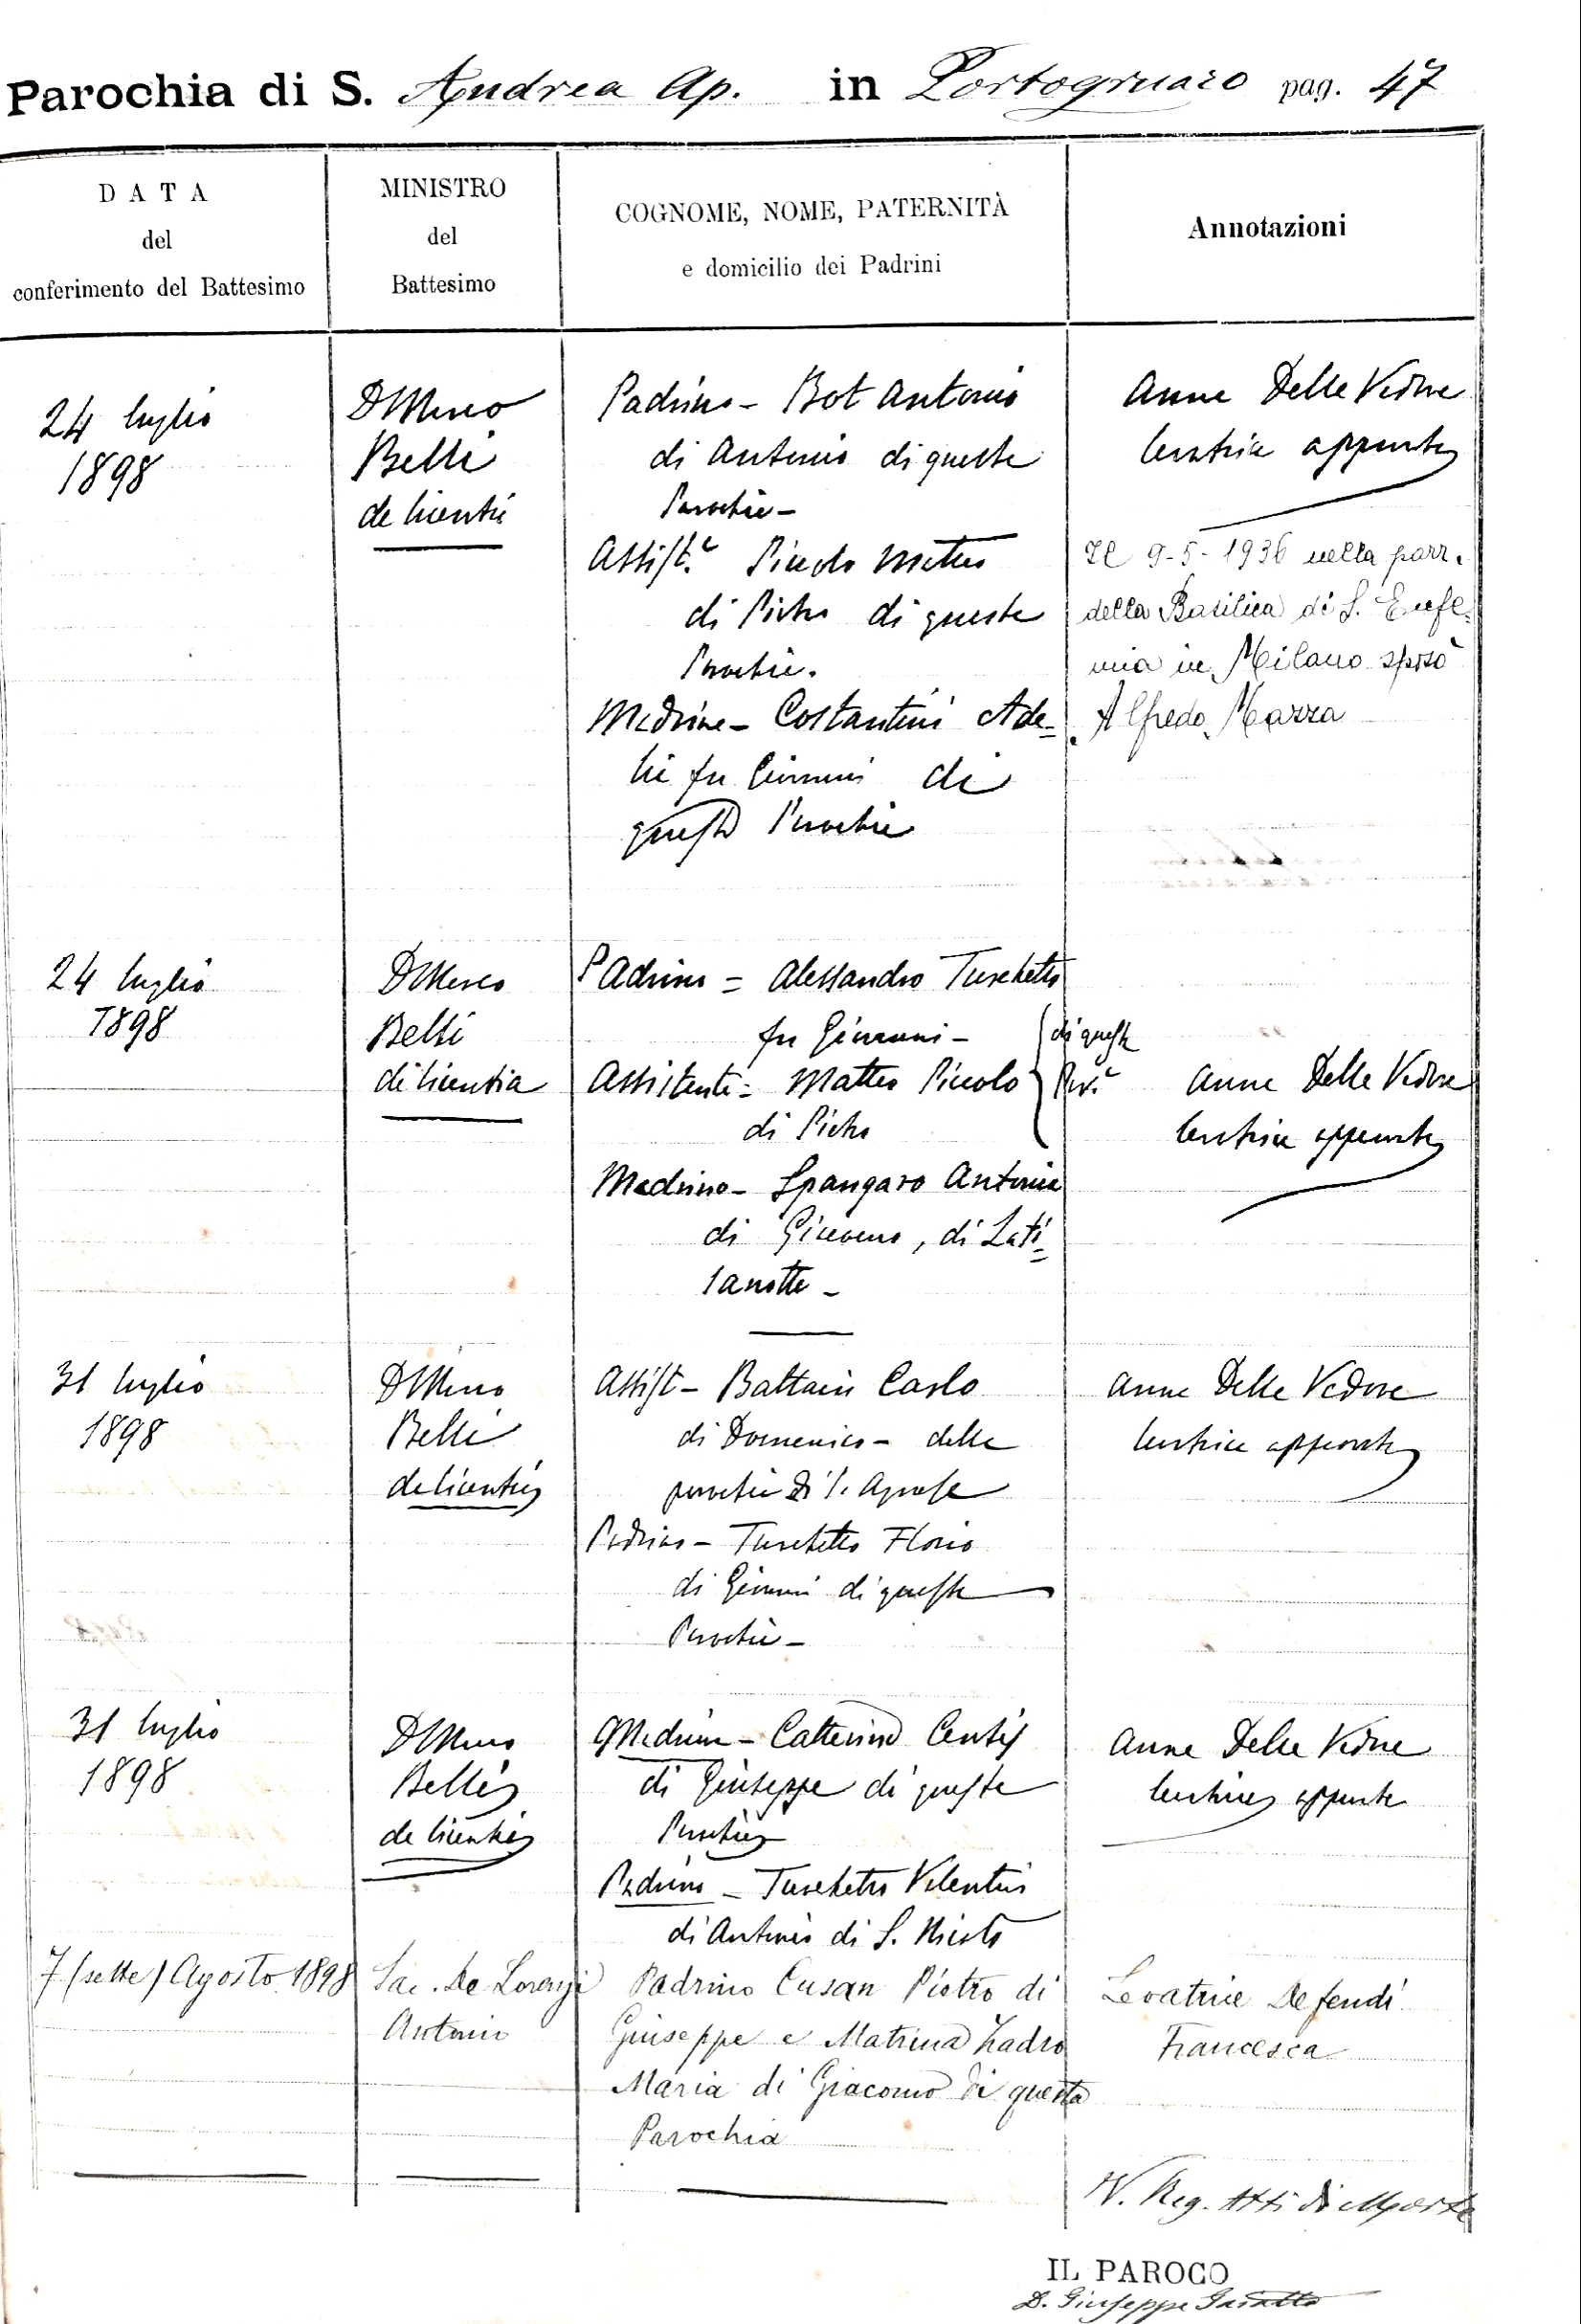 Parochia di S. Andrea Ap. in Portogruaro pag. 47
DATA
del
conferimento del Battesimo
MINISTRO
del
Battesimo
COGNOME, NOME, PATERNITÀ
e domicilio dei Padrini
Annotazioni
24 luglio
1898
D Marco
Belli
de licentia
Padrino - Bot Antonio
di Antonio di questa
Parochia -
Assist.e Piccolo Matteo
di Pietro di questa
Parochia.
Madrina - Costantini Ade=
lia fu Giovanni di
questa Parochia
Anna Delle Vedove
levatrice approvata
Il 9-5-1936 nella parr.
della Basilica di S. Eufe=
mia in Milano sposò
Alfredo Mazza
24 luglio
1898
D Marco
Belli
di licentia
Padrino = Alessandro Turchetto
fu Giovanni -
Assistente = Matteo Piccolo
di Pietro
di questa
Par.a
Madrina - Spangaro Antonia
di Giacomo, di Lati=
sanotta -
Anna Delle Vedove
levatrice approvata
31 luglio
1898
D Marco
Belli
de licentia
Assist - Battain Carlo
di Domenico - della
parochia di S. Agnese
Padrino - Turchetto Florio
di Giovanni di questa
Parochia -
Anna Delle Vedove
levatrice approvata
31 luglio
1898
D Marco
Belli
de licentia
Madrina - Catterina Centis
di Giuseppe di questa
Parochia
Padrino - Turchetto Valentino
di Antonio di S. Nicolo
Anna Delle Vedove
levatrice approvata
7 (sette) Agosto 1898
Sac. De Lorenzi
Antonio
Padrino Cusan Pietro di
Giuseppe e Matrina Zadro
Maria di Giacomo di questa
Parochia
Levatrice Defendi
Francesca
V. Reg. Atti di Morte
IL PAROCO
D. Giuseppe